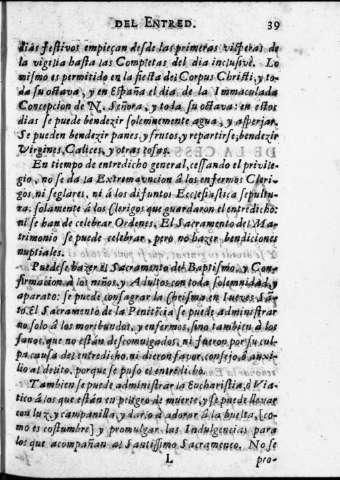 DEL ENTRED. 39
dias festivos empieçan desde las primeras visperas de
la vigilia hasta las Completas del dia inclusivè. Lo
mismo es permitido en la fiesta del Corpus Christi, y to-
da su octava, y en España el dia de la Immaculada
Concepcion de N. Señora, y toda su octava: en estos
dias se puede bendezir solemnemente agua, y asperjar.
Se pueden bendezir panes, y frutos, y repartirse, bendezir
Virgines, Calices, y otras cosas.
En tiempo de entredicho general, cessando el privile-
gio, no se dà la Extremauncion à los enfermos Cleri-
gos, ni seglares, ni à los difuntos Ecclesiastica sepultu-
ra, solamente à los Clerigos que guardaron el entredicho:
ni se han de celebrar Ordenes. El Sacramento del Ma-
trimonio se puede celebrar, pero no hazer bendiciones
nuptiales.
Puedese hazer el Sacramento del Baptismo, y Con-
firmacion à los niños, y Adultos con toda solemnidad, y
aparato: se puede consagrar la Chrisma en Iueves San-
to. El Sacramento de la Penitẽcia se puede administrar
no solo à los moribundos, y enfermos, sino tambien à los
sanos, que no estàn descomulgados, ni fueron por su cul-
pa causa del entredicho, ni dieron favor, consejo, ò auxi-
lio al delito, porque se puso el entredicho.
Tambien se puede administrar la Eucharistia, ò Via-
tico à los que estàn en peligro de muerte, y se puede llevar
con luz, y campanilla, y darlo à adorar à la buelta, [co-
mo es costumbre] y promulgar las Indulgencias para
los que acompañan al Santissimo Sacramento. No se
L pro-